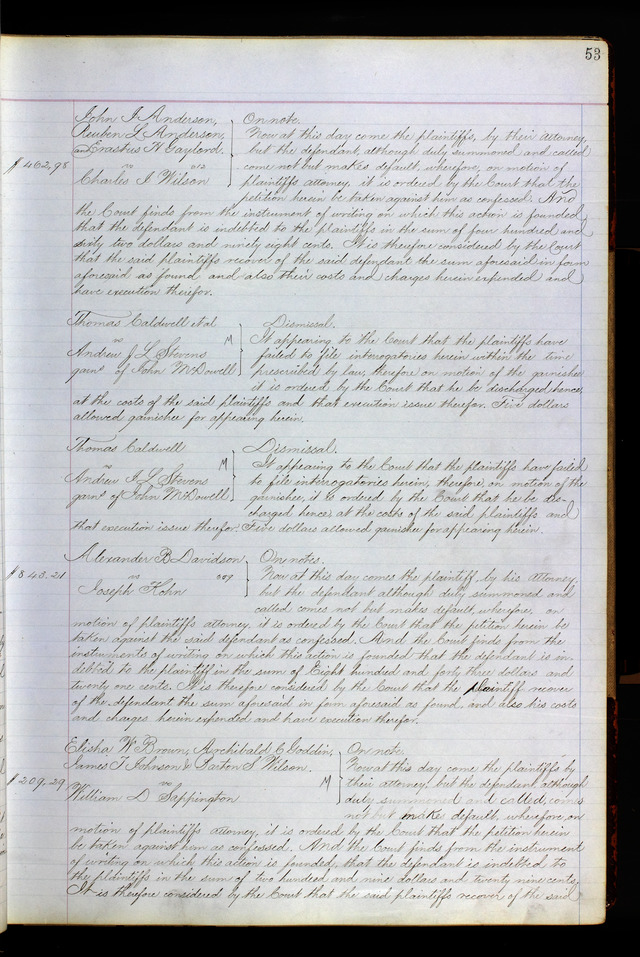 53
John J. Anderson, } On note.
Reuben L. Anderson, Now at this day come the plaintiffs, by their attorney,
and Erastus W Gaylord. but the defendant, although duly summoned and called
$462,98 vs come not but makes default, wherefore, on motion of
Charles I Wilson plaintiffs attorney, it is ordered by the Court that the
petition herein be taken against him as confessed. And
the Court finds from the instrument of writing on which this action is founded
that the defendant is indebted to the plaintiffs in the sum of four hundred and
sixty two dollars and ninety eight cents. It is therefore considered by the Court
that the said plaintiffs recover of the said defendant the sum aforesaid in form
aforesaid as found and also their costs and charges herein expended and
have execution therefor.
Thomas Caldwell et al } Dismissal.
vs M It appearing to the Court that the plaintiffs have
Andrew J. L Stevens failed to file interogatories herein within the time
garn. of John McDowell prescribed by law, therefore on motion of the garnishee
it is ordered by the Court that he be discharged hence,
at the costs of the said plaintiffs and that execution issue therefor. Five dollars
allowed garnishee for appearing herein.
Thomas Caldwell } Dismissal.
vs M It appearing to the Court that the plaintiffs have failed
Andrew J. L Stevens to file interrogatories herein, therefore, on motion of the
garn. of John McDowell garnishee, it is ordered by the Court that he be dis-
charged hence, at the costs of the said plaintiffs and
that execution issue therefor. Five dollars allowed garnishee for appearing herein.
Alexander B Davidson } On notes.
$843.21 vs Now at this day comes the plaintiff by his attorney,
Joseph Kohn but the defendant although duly summoned and
called comes not but makes default, wherefore, on
motion of plaintiffs attorney, it is ordered by the Court that the petition herein be
taken against the said defendant as confessed. And the Court finds from the
instruments of writing on which this action is founded that the defendant is in-
debted to the plaintiff in the sum of Eight hundred and forty three dollars and
twenty one cents. It is therefore considered by the Court that the plaintiff recover
of the defendant the sum aforesaid in form aforesaid as found and also his costs
and charges herein expended and have execution therefor.
Elisha W Brown, Archibald C Goddin, } On note.
James T Johnson & Paxton S Wilson. Now at this day come the plaintiffs by
$209.29 vs M their attorney, but the defendant although
William D Sappington duly summoned and called, comes
not but make default, wherefore, on
motion of plaintiffs attorney, it is ordered by the Court that the petition herein
be taken against him as confessed. And the Court finds from the instrument
of writing on which this action is founded, that the defendant is indebted to
the plaintiffs in the sum of two hundred and nine dollars and twenty nine cents.
It is therefore considered by the Court that the said plaintiffs recover of the said